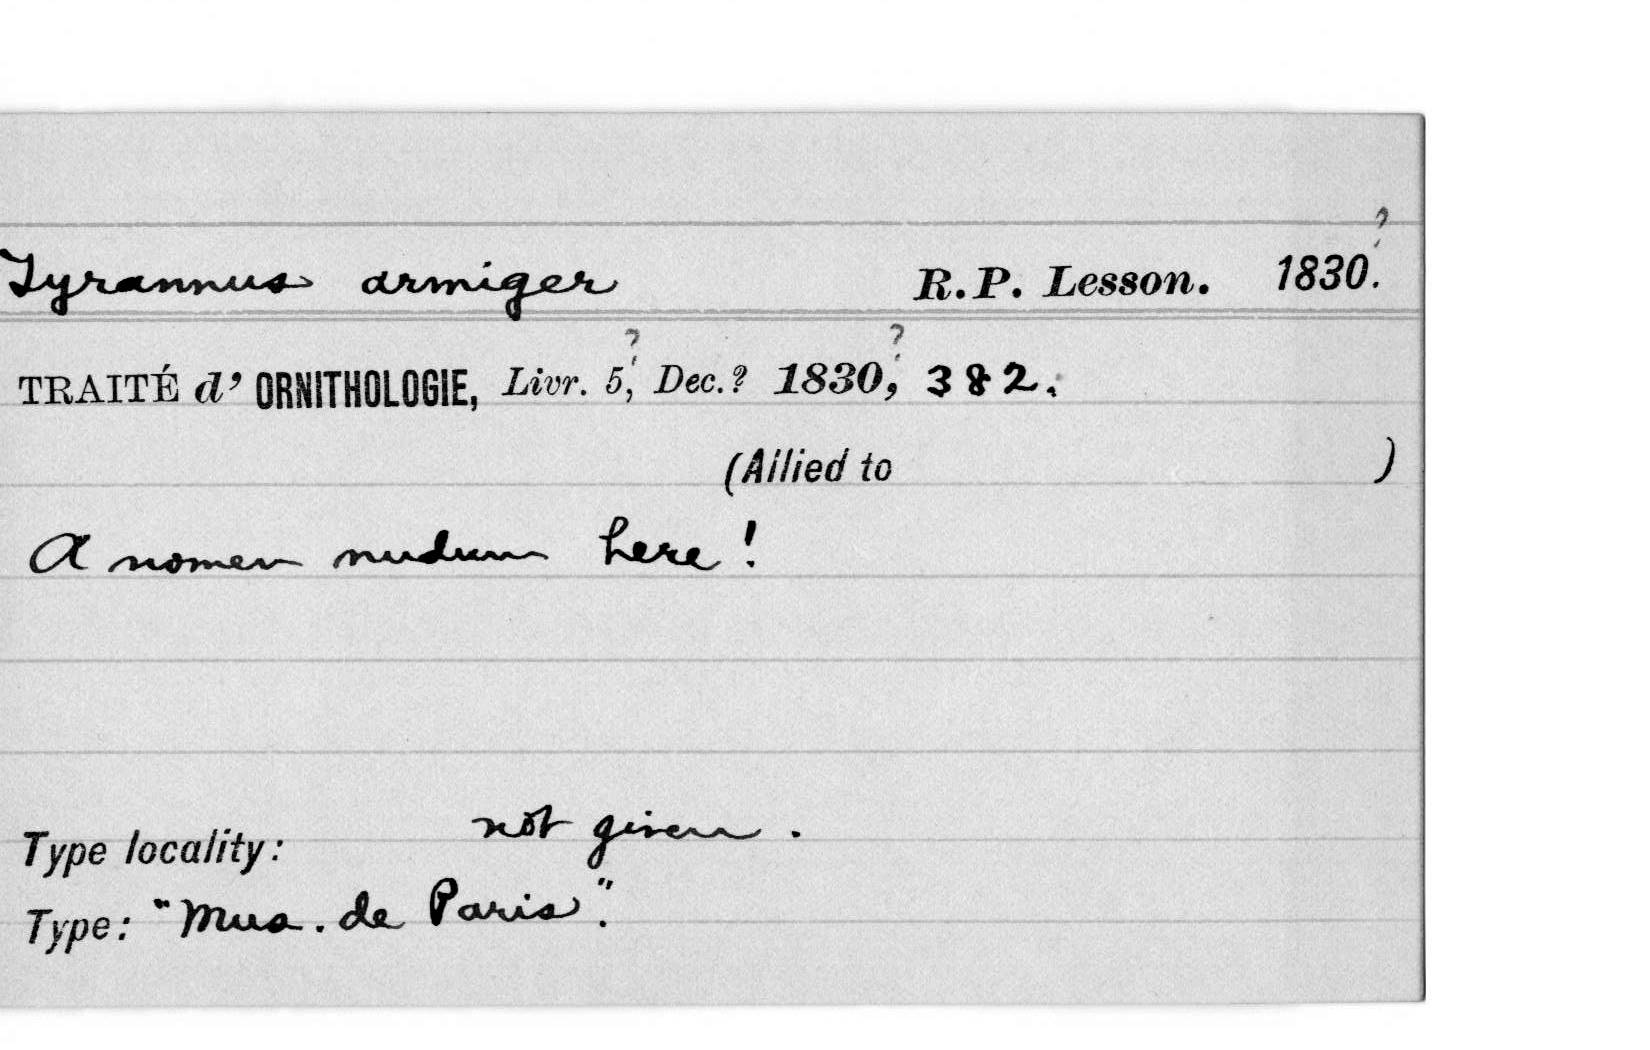 Tyrannus armiger R.P. Lesson. 1830?.
TRAITÉ d' ORNITHOLOGIE, Livr. 5?, Dec.? 1830?, 382.
(Allied to )
A nomen nudum here!
Type locality: not given.
Type: "Mus. de Paris".